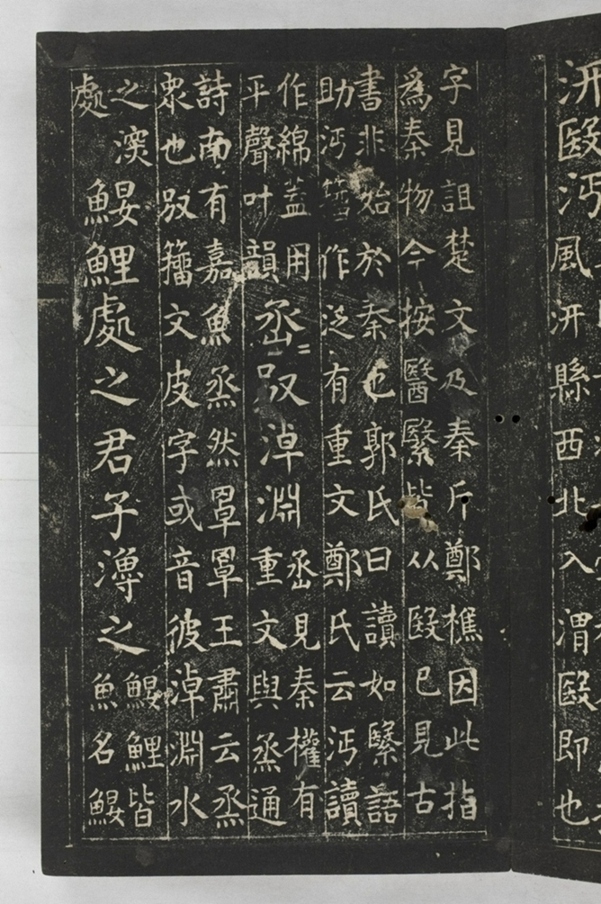 汧殹沔
風汧縣西北入渭殹即也
字見詛楚文及秦斤鄭樵因此指
為秦物今按醫繄皆从殹巳見古
書非始於秦也郭氏曰讀如繄語
助沔籀作泛有重文鄭氏云沔讀
作綿蓋用
平聲叶韻
丞=㕟淖淵
丞見秦權有
重文與烝通
詩南有嘉魚烝然罩罩王肅云烝
衆也㕟籀文皮字或音彼淖淵水
之深
處
鰋鯉處之君子之
鰋鯉皆
魚名鰋